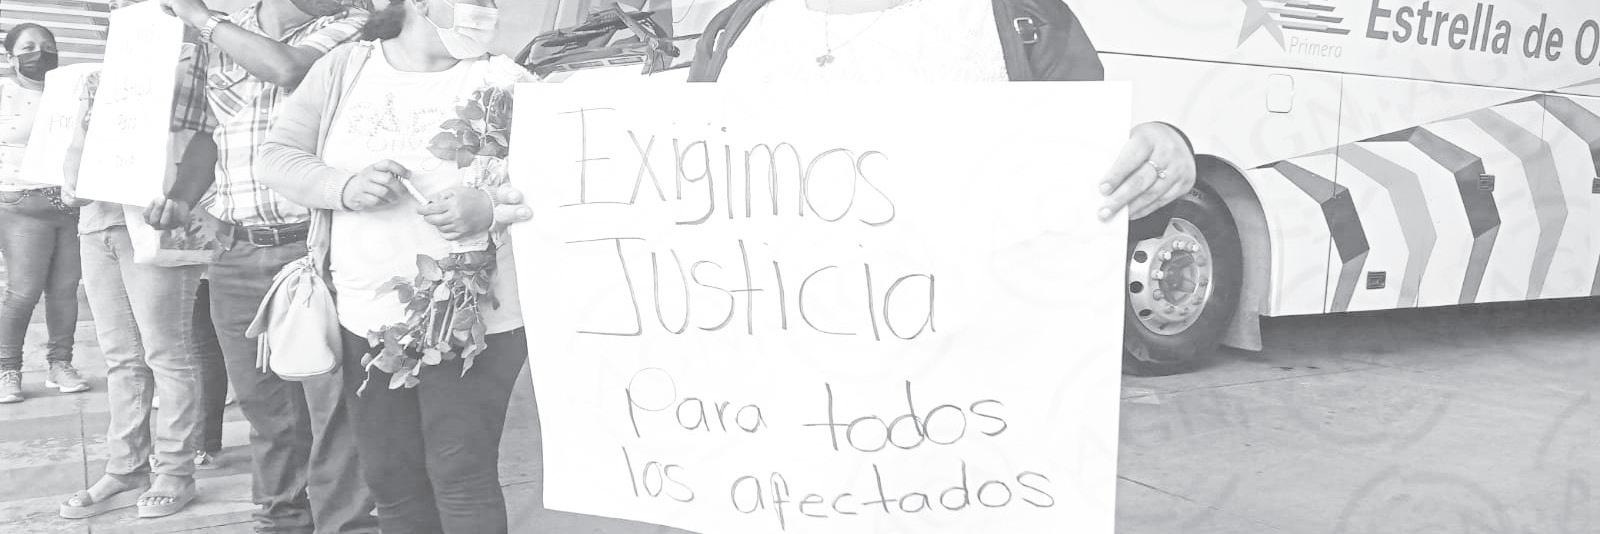 Exigimos
Justicia
Para todos
los afectados
Estrella de O
Primera